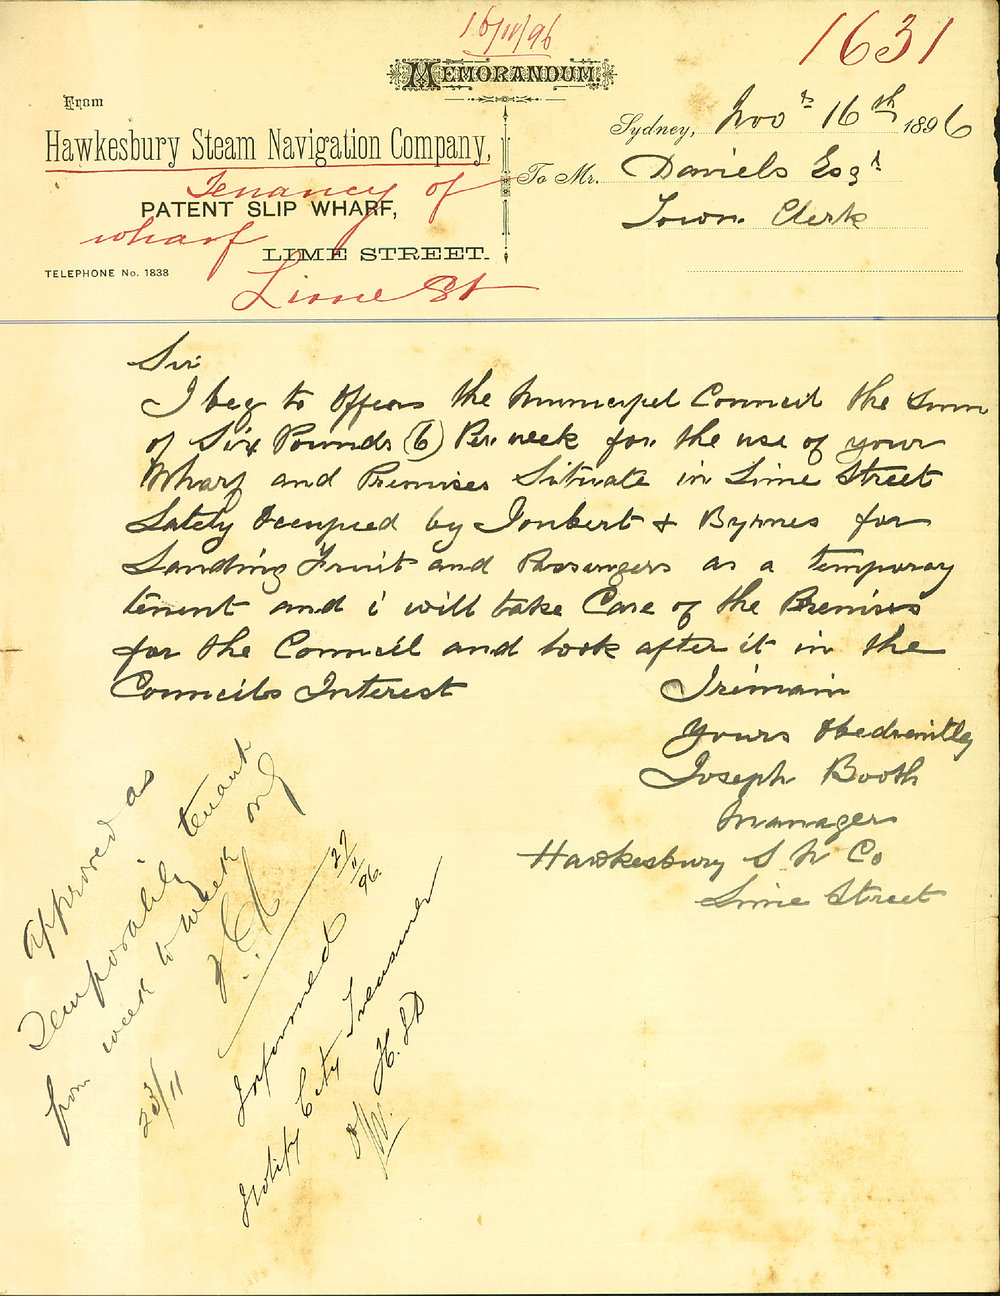 16/11/96
1631
MEMORANDUM
From
Hawkesbury Steam Navigation Company,
Tenancy of
PATENT SLIP WHARF,
wharf
LIME STREET.
TELEPHONE No. 1838
Lime St
Sydney, Nov 16th 1896
To Mr. Daniels Esqr
Town Clerk
Sir
I beg to Offer the Municipel Council the Sum
of Six Pounds (6) Per week for the use of your
Wharf and Premises Situate in Lime Street
Lately Occupied by Joubert & Byrnes for
Landing Fruit and Passengers as a temporay
tenent and i will take Care of the Premises
for the Council and look after it in the
Councils Interest
I remain
Yours Obedeintly
Joseph Booth
Manager
Hawkesbury S N Co
Lime Street
Approved as
Temporality tenant
from week to week only
23/11
27/11/96
Informed
Notify City Treasurer
H. S. D